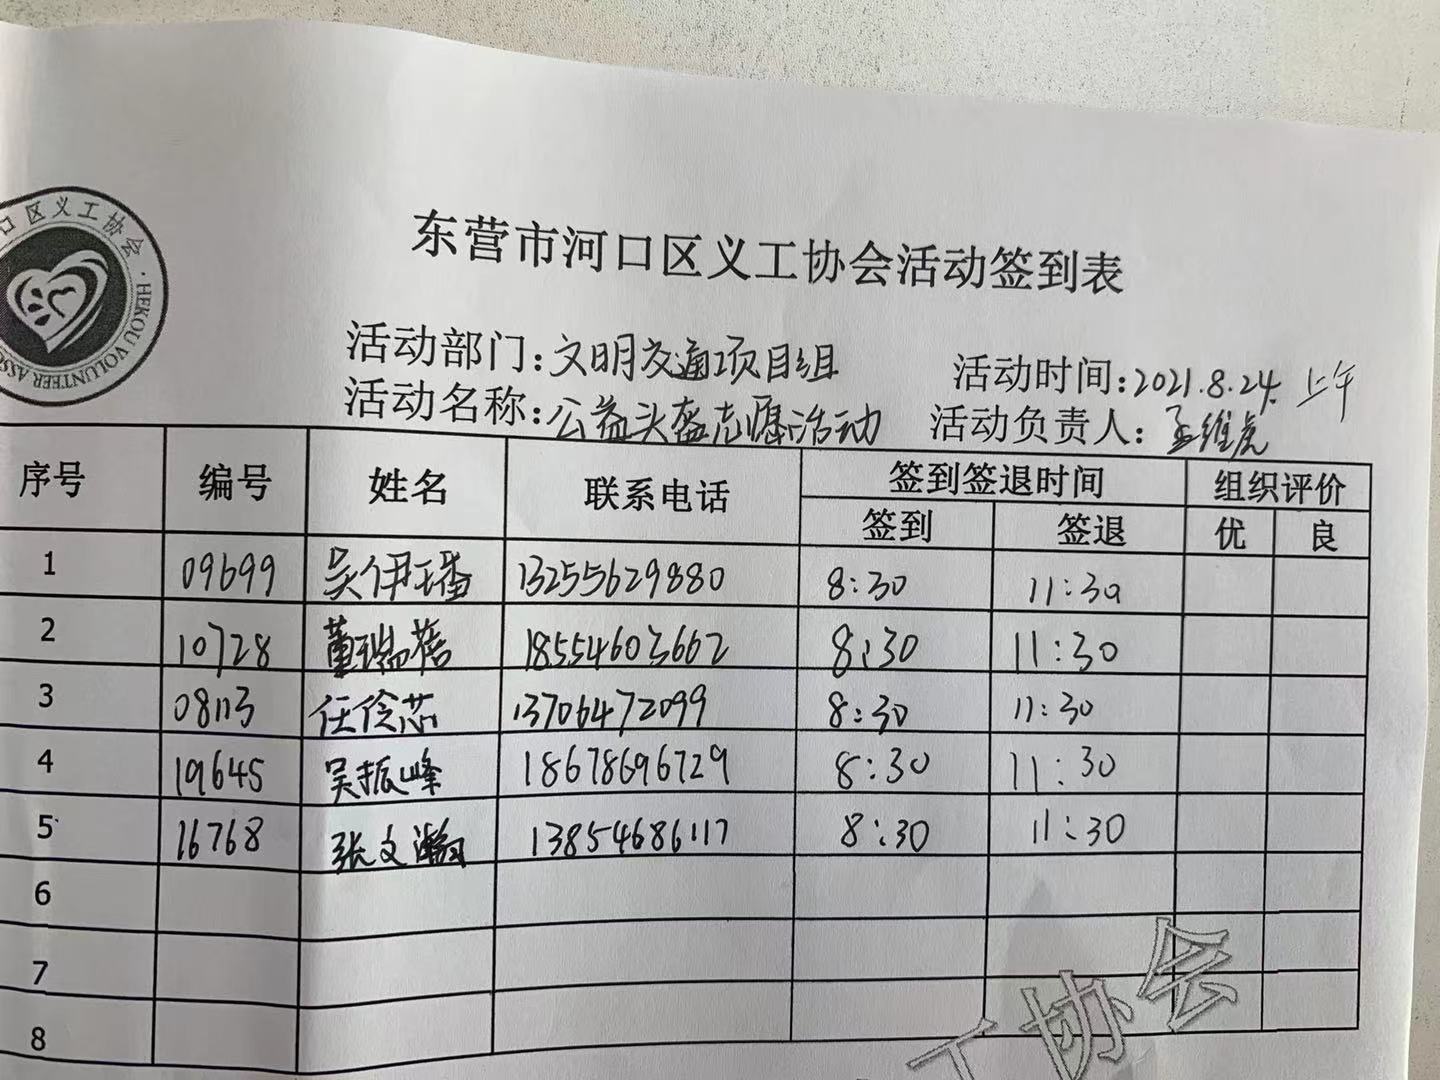 口区义工协会·HEKOU VOLUNTEER ASSO
东营市河口区义工协会活动签到表
活动部门:文明交通项目组 活动时间:2021.8.24.上午
活动名称:公益头盔志愿活动 活动负责人:孟维虎
序号 编号 姓名 联系电话 签到签退时间 组织评价
签到 签退 优 良
1 09699 吴伊璠 13255629880 8:30 11:30
2 10728 董瑞蓓 18554603662 8:30 11:30
3 08113 任伶芯 13706472099 8:30 11:30
4 19645 吴振峰 18678696729 8:30 11:30
5 16768 张文瀚 13854686117 8:30 11:30
6
7
8
工协会